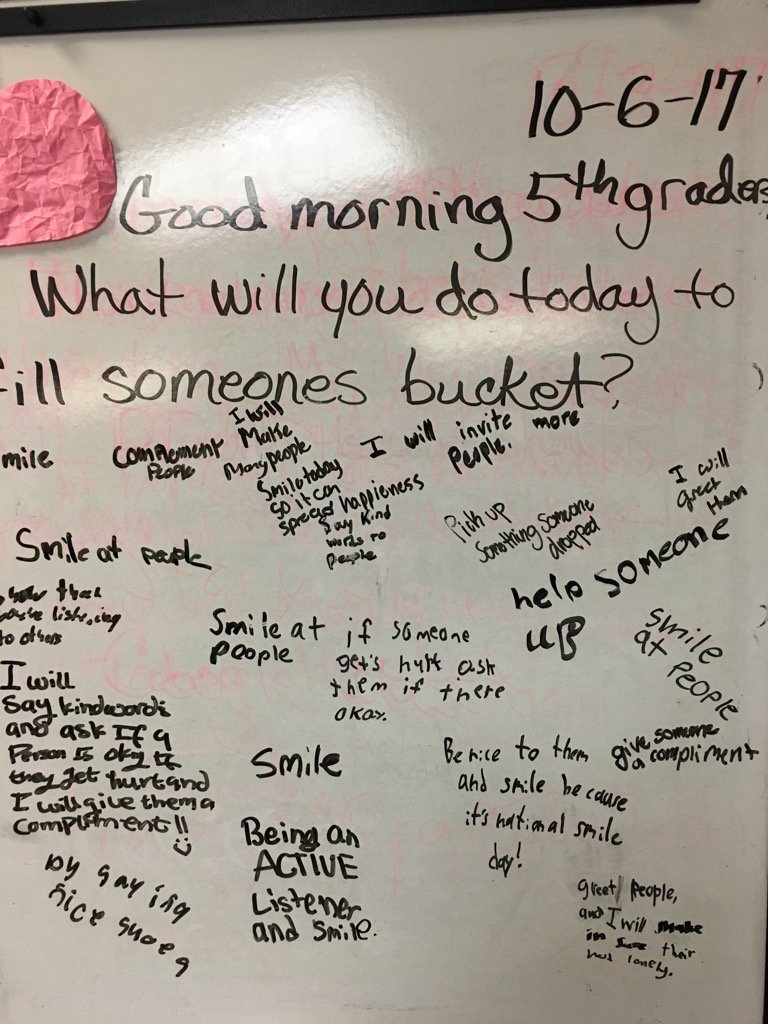 10-6-17
Good morning 5th graders
What will you do today to
fill someones bucket?
mile
Complement
People
I will
Make
Many people
Smile today
so it can
spread happieness
Say Kind
words to
people
I will invite more
People.
I will
greet
them
Pick up
Somthing someone
dropped
Smile at people
help someone
up
listening
to others
Smile at
people
if someone
get's hurt ask
them if there
okay.
smile
at People
I will
Say kind words
and ask If a
Person Is oky If
they get hurt and
I will give them a
Compliment!!
Smile
Be nice to them
and smile because
it's national smile
day!
give someone
a compliment
Being an
ACTIVE
Listener
and Smile.
by saying
nice shoes
greet People,
and I will make
sure their
not lonely.